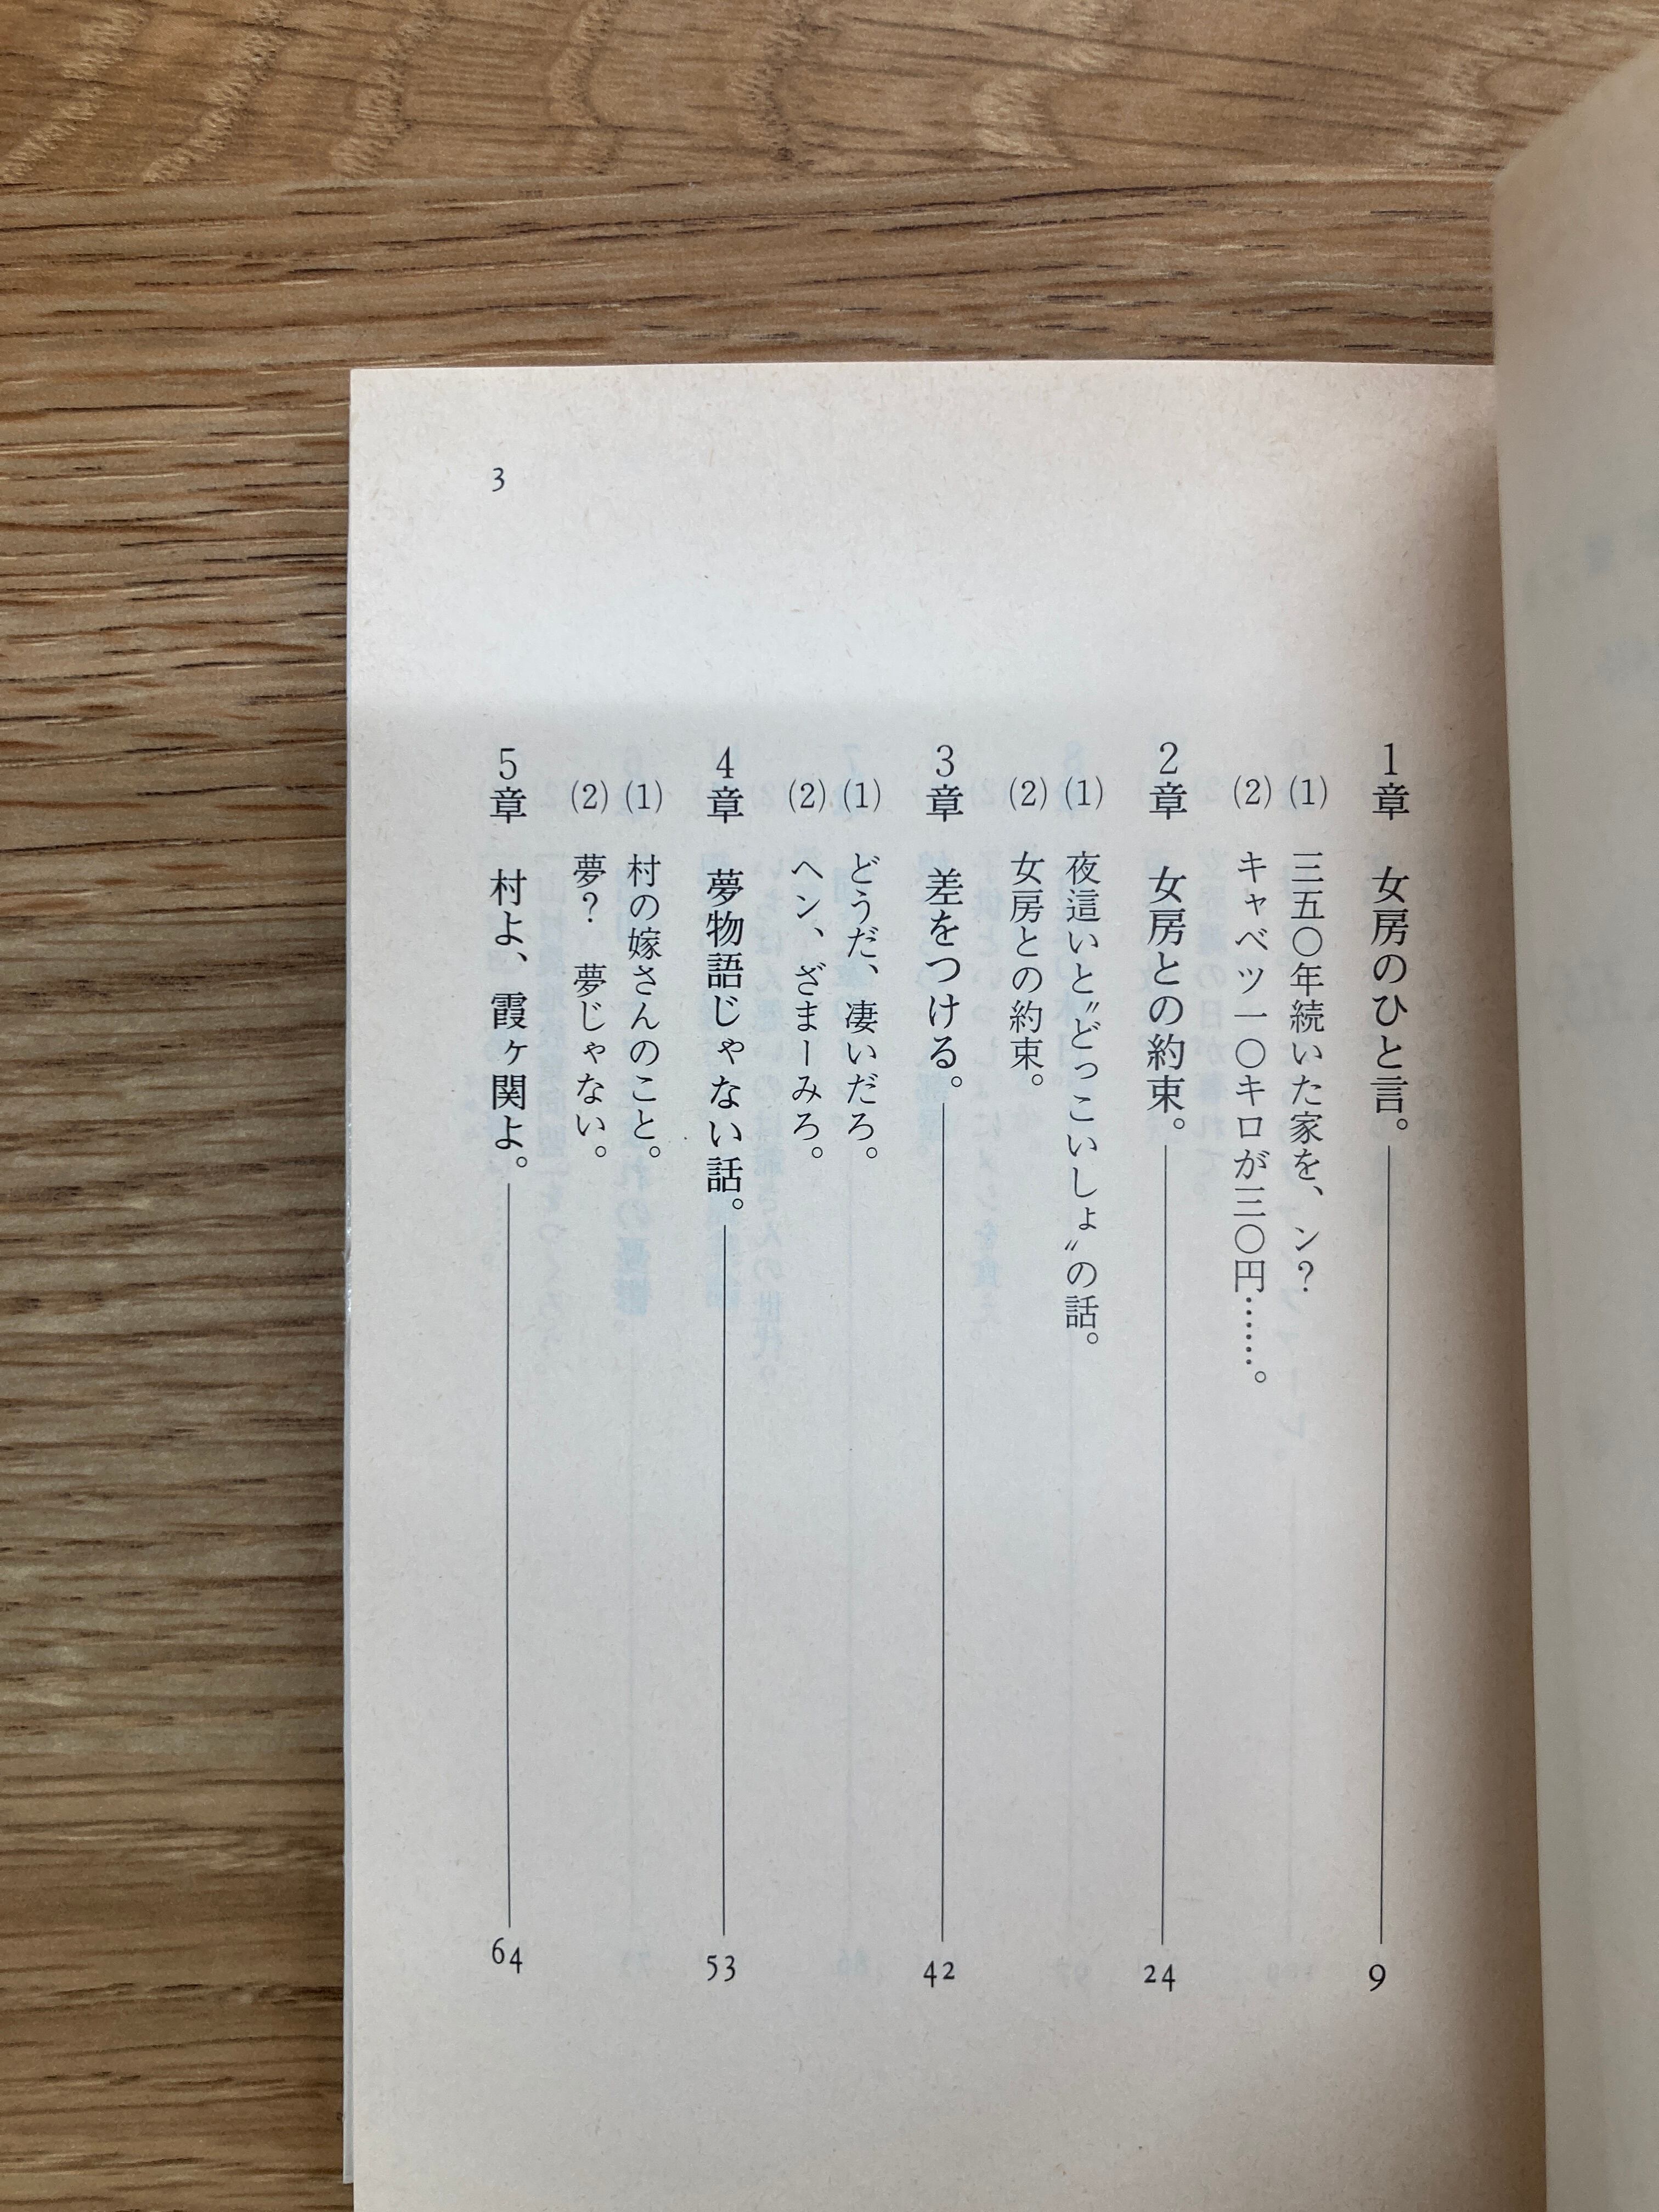 1章 女房のひと言。 9
(1) 三五〇年続いた家を、ン？
(2) キャベツ一〇キロが三〇円……。
2章 女房との約束。 24
(1) 夜這いと〝どっこいしょ〟の話。
(2) 女房との約束。
3章 差をつける。 42
(1) どうだ、凄いだろ。
(2) ヘン、ざまーみろ。
4章 夢物語じゃない話。 53
(1) 村の嫁さんのこと。
(2) 夢？ 夢じゃない。
5章 村よ、霞ヶ関よ。 64
3